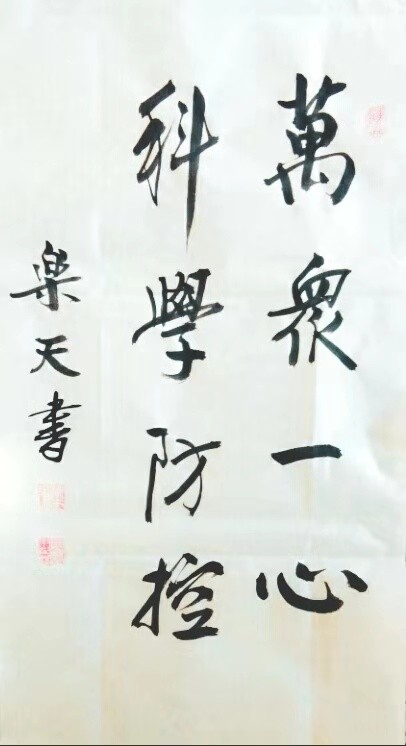 萬衆一心
科學防控
樂天書